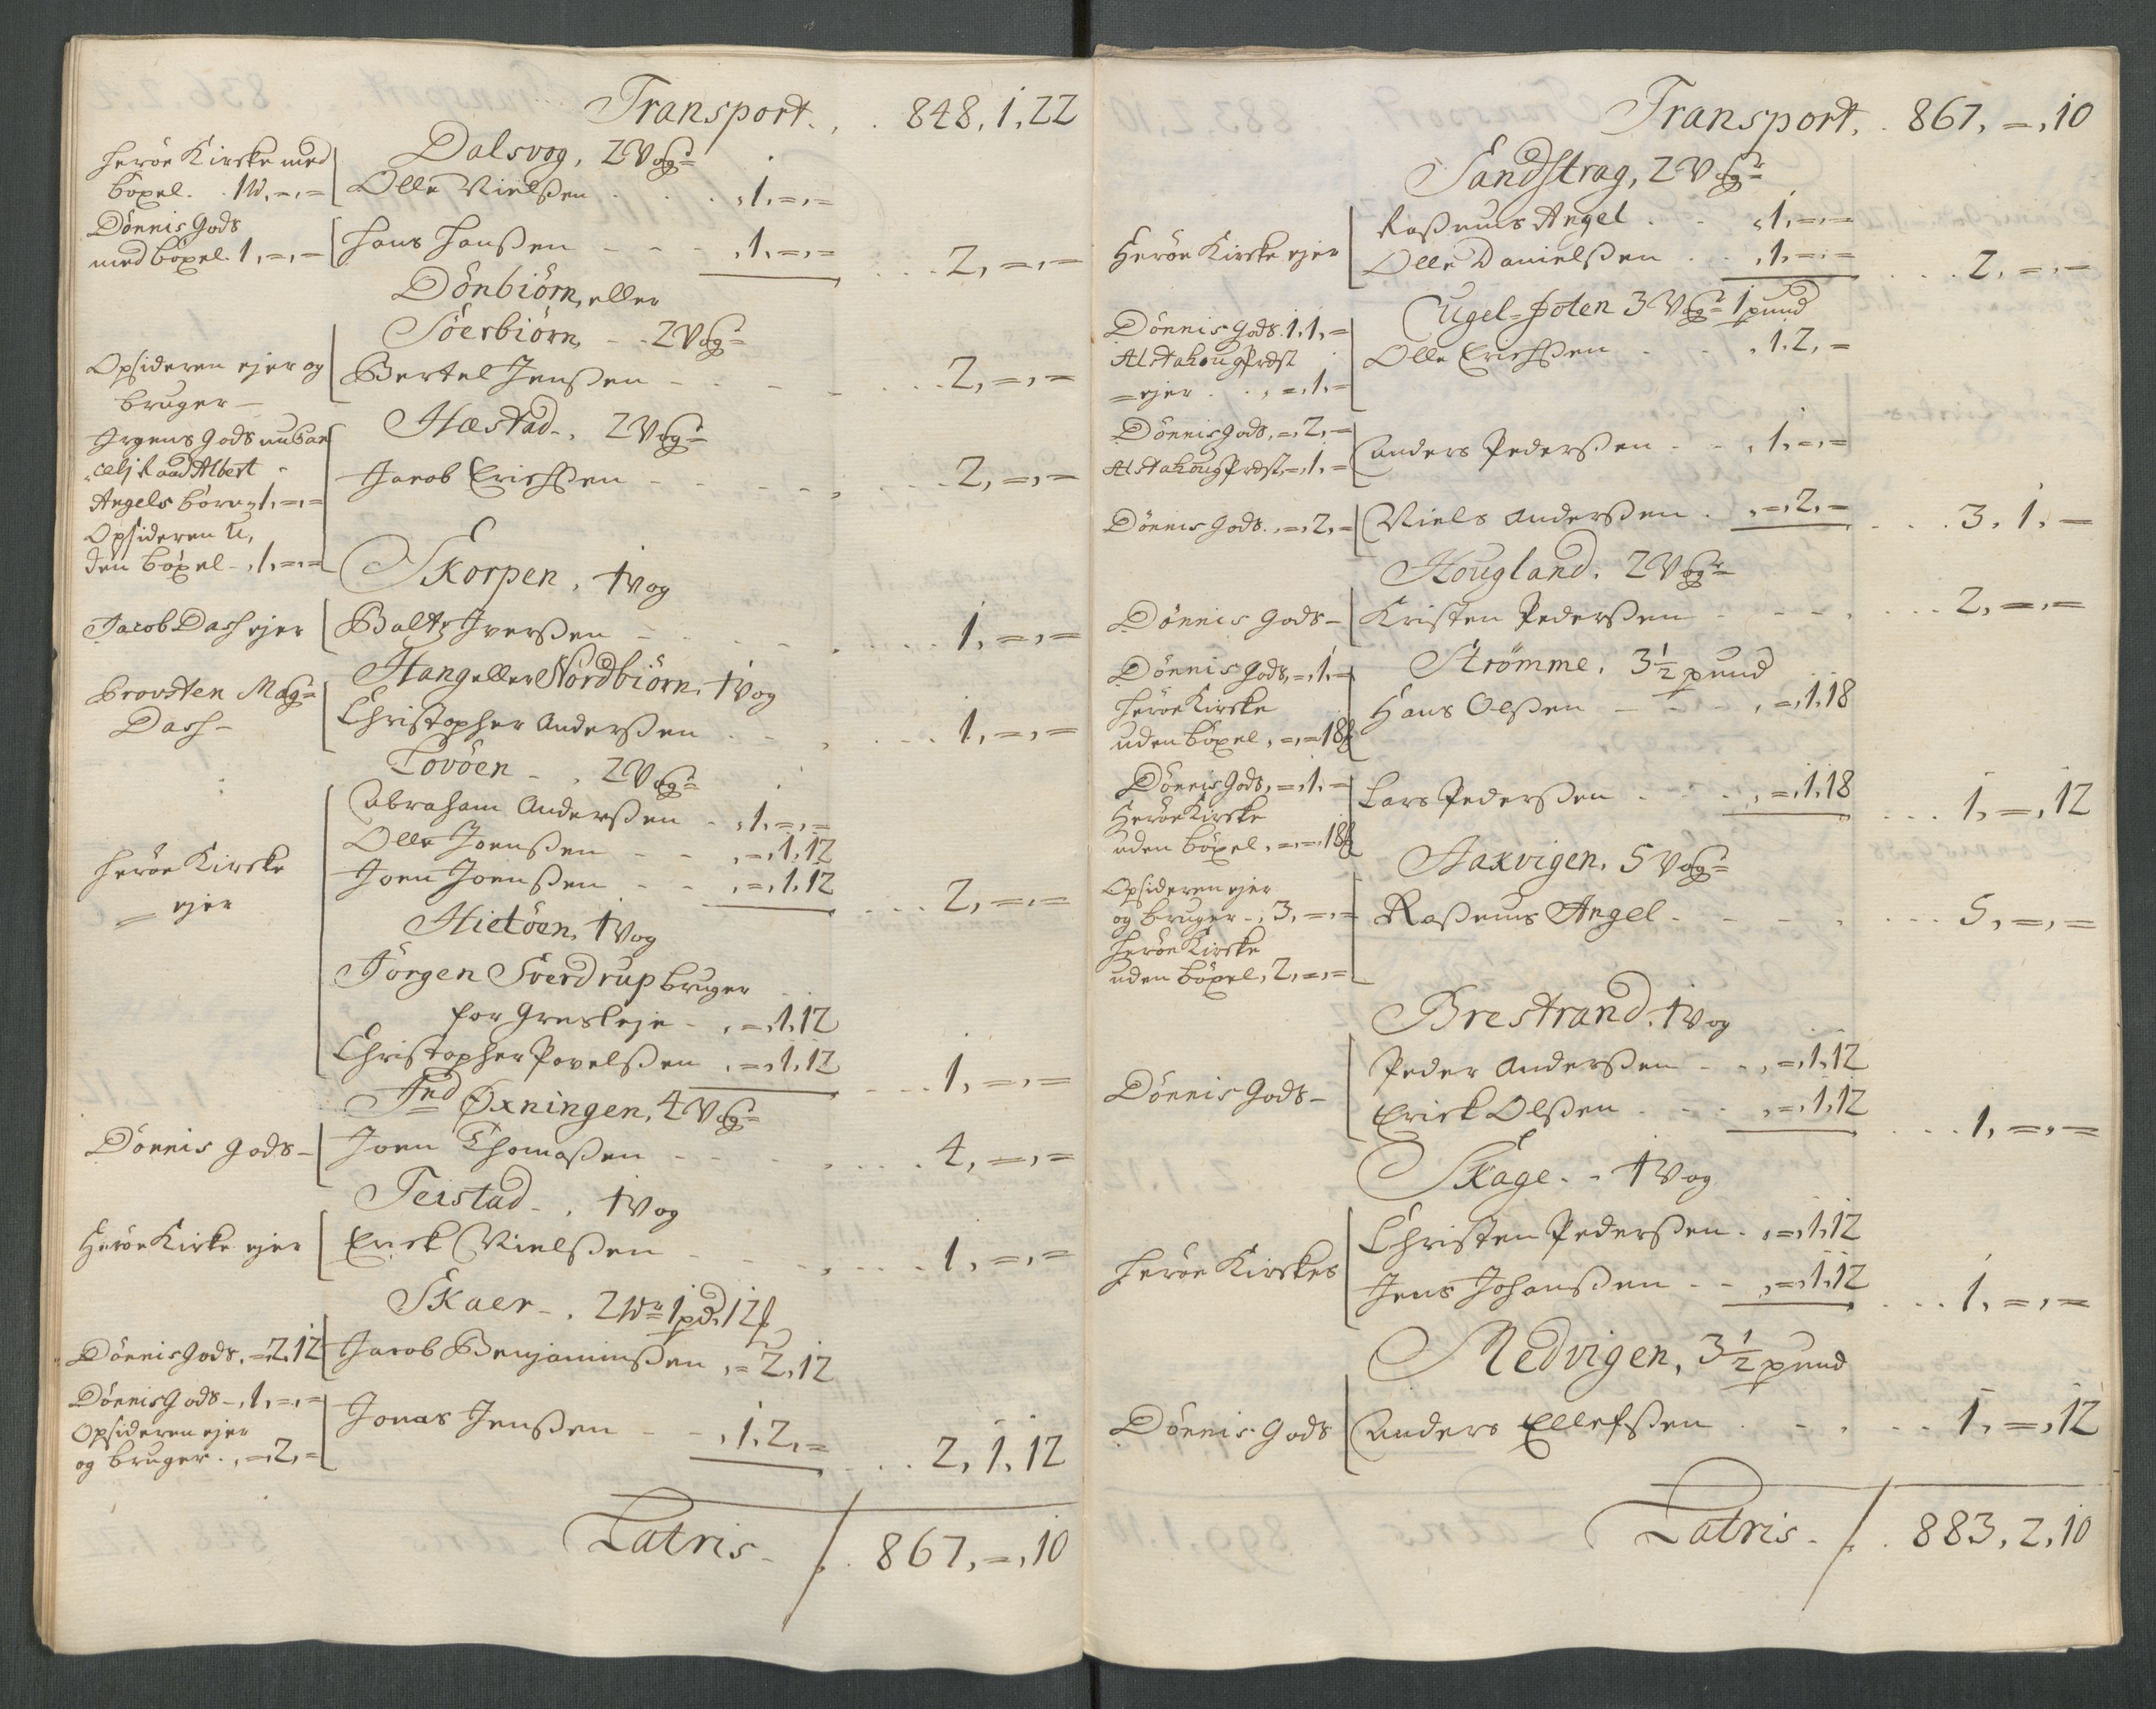 Transport. . . 848, 1, 22
Dalsvog, 2 Vog:r
Herøe Kirke med
bøxel. . 1W, =, =
Olle Nielsen . . . , 1, =, =
Dønnis Gods
med bøxel. 1, =, =
Hans Hanßen - - - , 1, =, =
. . . 2, =, =
Dönbiörn, eller
Söerbiörn, - . 2 Vog:r
Opsideren ejer og
bruger -
Bertel Jenßen - - - - . . . 2, =, =
Hæstad - , 2 Vog:r
Angels børn, 1, =, =
Opsideren u,
den bøxel -, 1, =, =
Jacob Erichßen - - - - , . . . 2, =, =
Skorpen, 1 Vog
Jacob Dass ejer
Baltz Iverßen - - - . . . . 1, =, =
Stang eller Nordbiörn, 1 Vog
Provsten Mag:r
Dass -
Christopher Anderßen . - , . . . 1, =, =
Lovöen - , 2 Vog:r
Herøe Kirke
= ejer
Abraham Anderßen - , 1, =, =
Olle Joenßen - - , =, 1, 12
Joen Joenßen - - , =, 1, 12
. . . 2, =, =
Hietöen, 1 Vog
Jörgen Sverdrup bruger
for Græsleje - , =, 1, 12
Christopher Povelßen , =, 1, 12
. . . 1, =, =
Ind Øxningen, 4 Vog:r
Dønnis Gods -
Joen Thomaßen - - - , . . . 4, =, =
Teistad - , 1 Vog
Herøe Kirke ejer
Erick Nielßen - - - , . . . 1, =, =
Skaer - , 2 W:r 1 pd. 12
Dønnis Gods, = 2, 12
Jacob Benjaminßen , = 2, 12
Dønnis Gods -, 1, =, =
Opsideren ejer
og bruger . , =, 2, =
Jonas Jenßen - - , 1, 2, =
. . . 2, 1, 12
Latris - /. . 867, =, 10
Transport. . 867, =, 10
Sandstrag, 2 Vog:r
Herøe Kirke ejer
Raßmus Angel . - , 1, =, =
Olle Danielßen . . , 1, =, =
. . . 2, =, =
Dønnis Gods. 1, 1, =
Alstahoug Præst
= ejer . . , =, 1, =
3 Vog:r 1 pund
Olle Erichßen - - , 1, 2, =
Dønnis Gods, =, 2, =
Alstahoug Præst, =, 1, =
Anders Pederßen - - , 1, =, =
Dønnis Gods. , =, 2, =
Niels Anderßen . , =, 2, =
. . . 3, 1, =
Hougland. 2 Vog:r
Dønnis Gods -
Kristen Pederßen - - - , . . . 2, =, =
Strömme. 3 1/2 pund
Dønnis Gods, =, 1, =
Herøe Kirke
uden bøxel, =, = 18
Hans Olßen - - - , =, 1, 18
Dønnis Gods, =, 1, =
Herøe Kirke
uden bøxel, =, =, 18
Lars Pederßen - - - , =, 1, 18
. . . 1, =, 12
Aaxvigen, 5 Vog:r
Opsideren ejer
og bruger -, 3, =, =
Herøe Kirke
uden bøxel, 2, =, =
Raßmus Angel - - - . . . . 5, =, =
Brestrand, 1 Vog
Dønnis Gods -
Peder Anderßen - - , =, 1, 12
Erick Olßen - - - , =, 1, 12
. . . 1, =, =
Skage - - 1 Vog
Herøe Kirkes
Christen Pederßen . , =, 1, 12
Jens Johanßen - - , =, 1, 12
. . . 1, =, =
Medvigen, 3 1/2 pund
Dønnis Gods
Anders Ellefsen . - , . . 1, =, 12
Latris - /. . 883, 2, 10